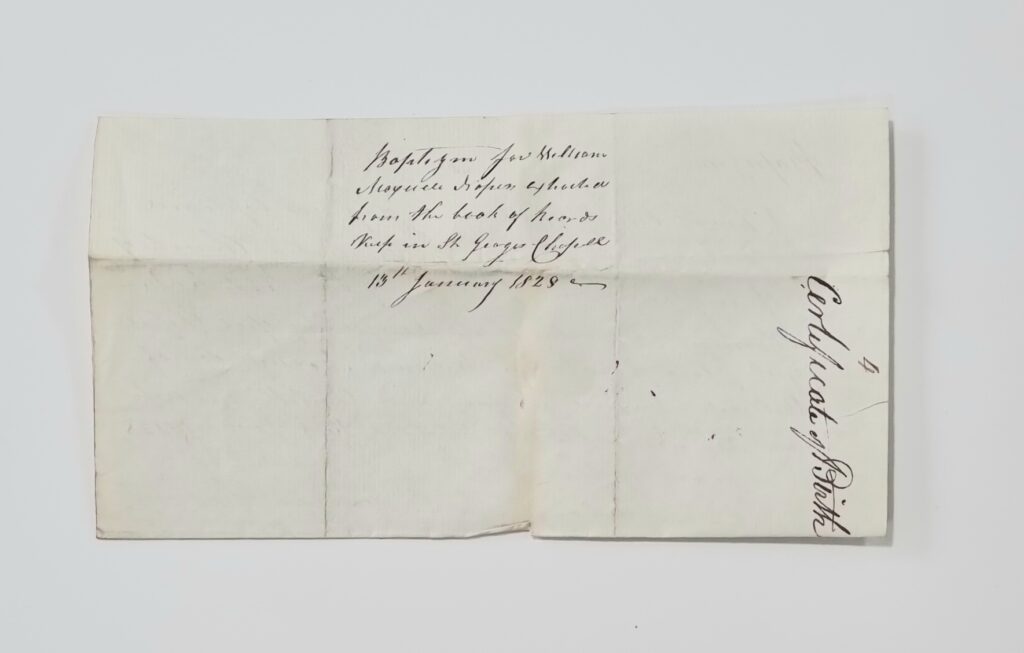 Baptism for William
Maxwell Draper extracted
from the book of Records
Keep in St Georges Chapell
13th January 1828
4
Certificate of Birth